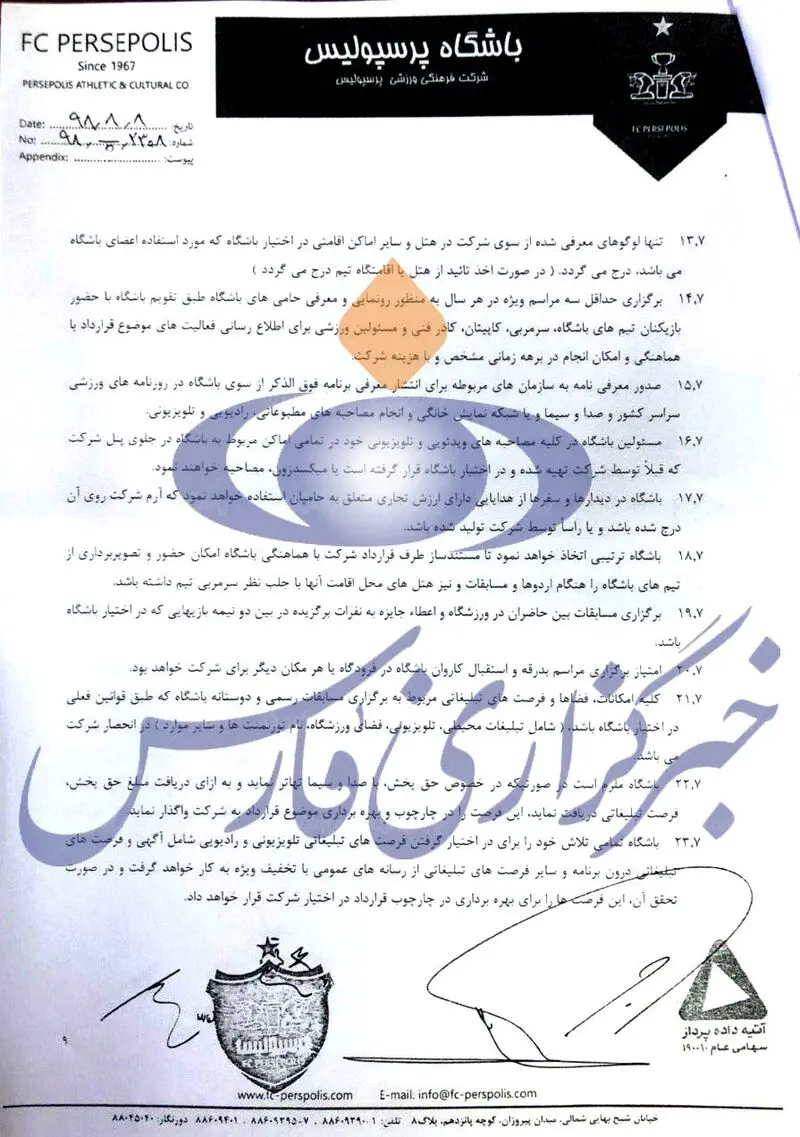 FC PERSEPOLIS
Since 1967
PERSEPOLIS ATHLETIC & CULTURAL CO
باشگاه پرسپولیس
شرکت فرهنگی ورزشی پرسپولیس
FC PERSEPOLIS
Date: ۹۸/۸/۸ تاریخ:
No: شماره:
Appendix: پیوست:
۱۳.۷ تنها لوگوهای معرفی شده از سوی شرکت در هتل و سایر اماکن اقامتی در اختیار باشگاه که مورد استفاده اعضای باشگاه
می باشد، درج می گردد. ( در صورت اخذ تائید از هتل یا اقامتگاه تیم درج می گردد )
۱۴.۷ برگزاری حداقل سه مراسم ویژه در هر سال به منظور رونمایی و معرفی حامی های باشگاه طبق تقویم باشگاه با حضور
بازیکنان تیم های باشگاه، سرمربی، کاپیتان، کادر فنی و مسئولین ورزشی برای اطلاع رسانی فعالیت های موضوع قرارداد با
هماهنگی و امکان انجام در برهه زمانی مشخص و با هزینه شرکت.
۱۵.۷ صدور معرفی نامه به سازمان های مربوطه برای انتشار معرفی برنامه فوق الذکر از سوی باشگاه در روزنامه های ورزشی
سراسر کشور و صدا و سیما و یا شبکه نمایش خانگی و انجام مصاحبه های مطبوعاتی، رادیویی و تلویزیونی.
۱۶.۷ مسئولین باشگاه در کلیه مصاحبه های ویدئویی و تلویزیونی خود در تمامی اماکن مربوط به باشگاه در جلوی پنل شرکت
که قبلاً توسط شرکت تهیه شده و در اختیار باشگاه قرار گرفته است یا میکسدزون، مصاحبه خواهند نمود.
۱۷.۷ باشگاه در دیدارها و سفرها از هدایایی دارای ارزش تجاری متعلق به حامیان استفاده خواهد نمود که آرم شرکت روی آن
درج شده باشد و یا راساً توسط شرکت تولید شده باشد.
۱۸.۷ باشگاه ترتیبی اتخاذ خواهد نمود تا مستندساز طرف قرارداد شرکت با هماهنگی باشگاه امکان حضور و تصویربرداری از
تیم های باشگاه را هنگام اردوها و مسابقات و نیز هتل های محل اقامت آنها با جلب نظر سرمربی تیم داشته باشد.
۱۹.۷ برگزاری مسابقات بین حاضران در ورزشگاه و اعطاء جایزه به نفرات برگزیده در بین دو نیمه بازیهایی که در اختیار باشگاه
باشد.
۲۰.۷ امتیاز برگزاری مراسم بدرقه و استقبال کاروان باشگاه در فرودگاه یا هر مکان دیگر برای شرکت خواهد بود.
۲۱.۷ کلیه امکانات، فضاها و فرصت های تبلیغاتی مربوط به برگزاری مسابقات رسمی و دوستانه باشگاه که طبق قوانین فعلی
در اختیار باشگاه باشد، ( شامل تبلیغات محیطی، تلویزیونی، فضای ورزشگاه، نام تورنمنت ها و سایر موارد ) در انحصار شرکت
می باشد.
۲۲.۷ باشگاه ملزم است در صورتیکه در خصوص حق پخش، با صدا و سیما تهاتر نماید و به ازای دریافت مبلغ حق پخش،
فرصت تبلیغاتی دریافت نماید، این فرصت را در چارچوب و بهره برداری موضوع قرارداد به شرکت واگذار نماید.
۲۳.۷ باشگاه تمامی تلاش خود را برای در اختیار گرفتن فرصت های تبلیغاتی تلویزیونی و رادیویی شامل آگهی و فرصت های
تبلیغاتی درون برنامه و سایر فرصت های تبلیغاتی از رسانه های عمومی با تخفیف ویژه به کار خواهد گرفت و در صورت
تحقق آن، این فرصت ها را برای بهره برداری در چارچوب قرارداد در اختیار شرکت قرار خواهد داد.
خبرگزاری فارس
آتیه داده پرداز
سهامی عام ۱۹۰۰۱۰
۹
www.fc-perspolis.com E-mail: info@fc-perspolis.com
خیابان شیخ بهایی شمالی، میدان پیروزان، کوچه پانزدهم، پلاک۸ تلفن: ۱-۸۸۶۰۹۳۹۰ ، ۷-۸۸۶۰۹۳۹۵ ، ۸۸۶۰۹۴۰۱ دورنگار: ۸۸۰۴۵۰۴۰